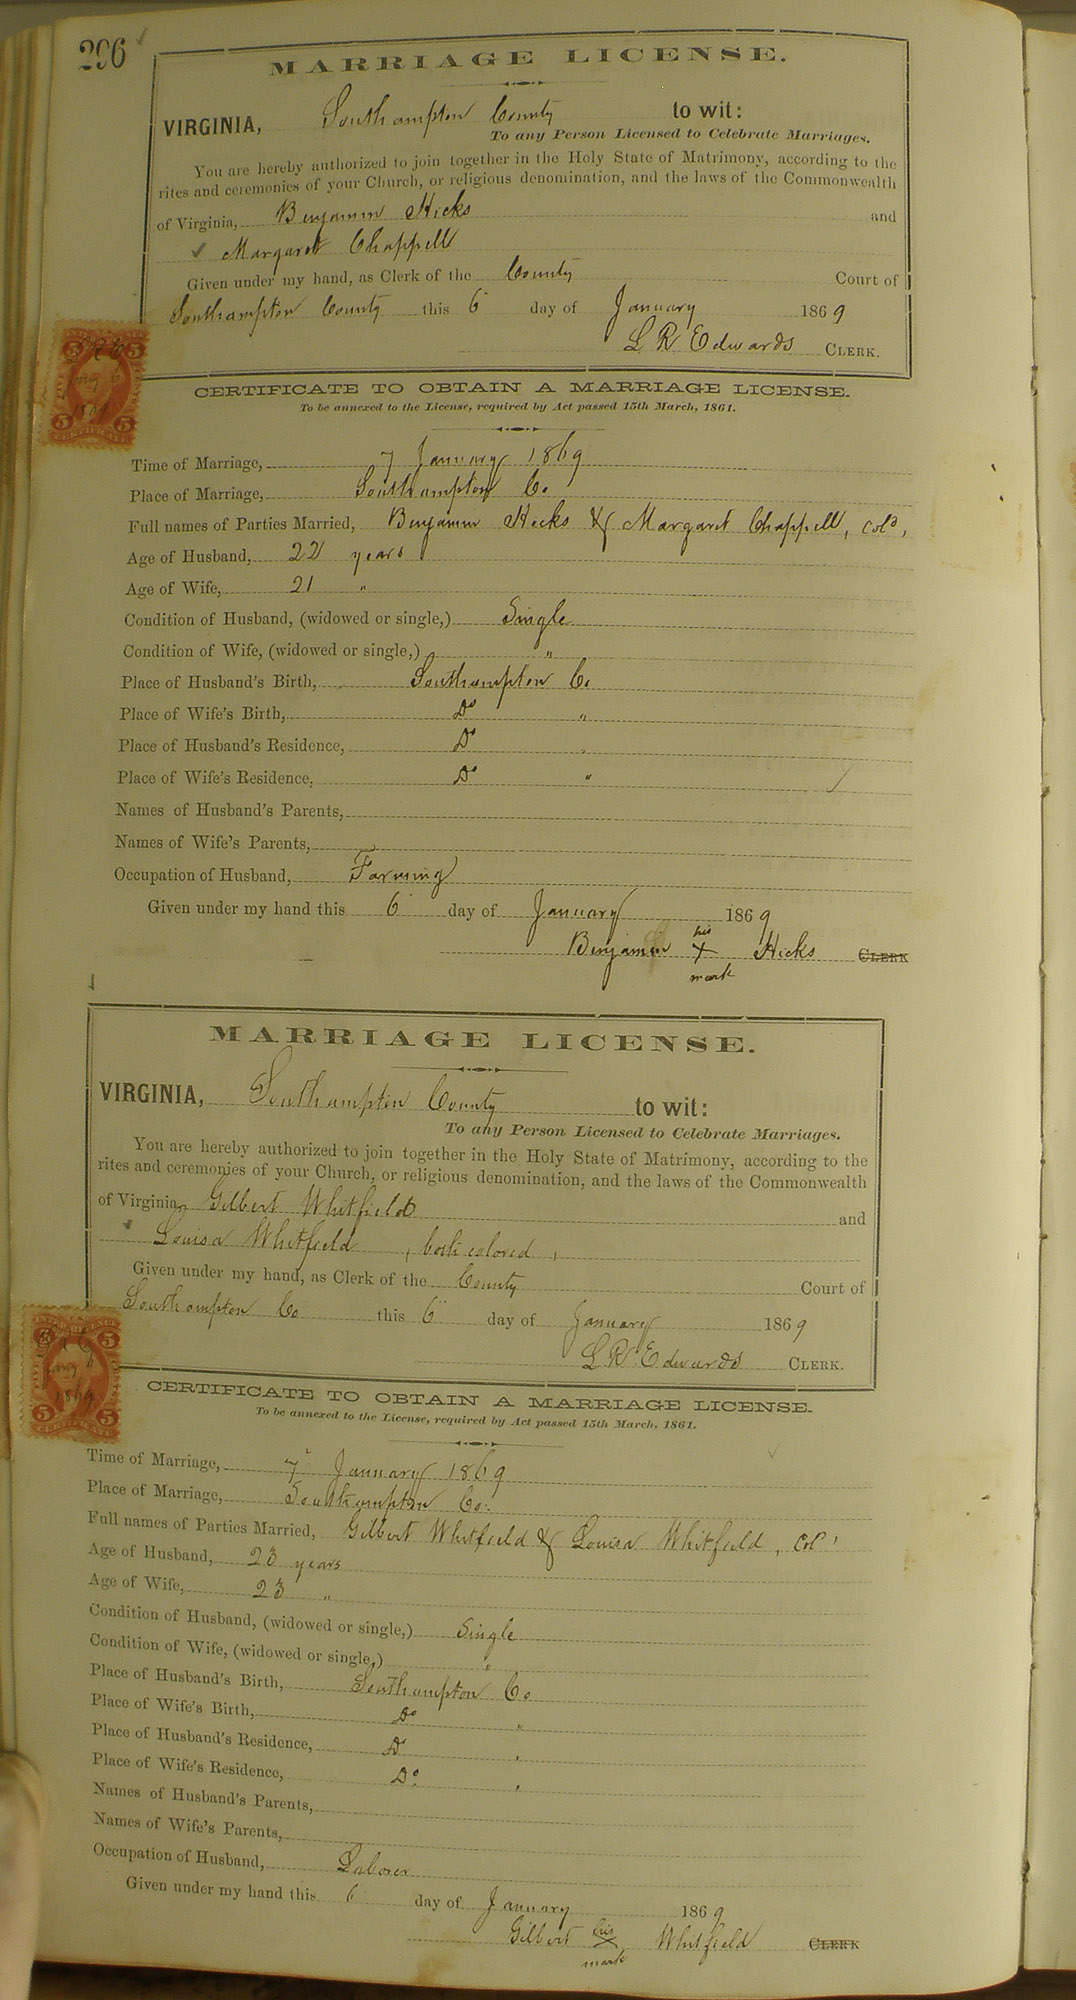 296
MARRIAGE LICENSE.
VIRGINIA, Southampton County to wit:
To any Person Licensed to Celebrate Marriages.
You are hereby authorized to join together in the Holy State of Matrimony, according to the
rites and ceremonies of your Church, or religious denomination, and the laws of the Commonwealth
of Virginia, Benjamin Hicks and
Margaret Chappell
Given under my hand, as Clerk of the County Court of
Southampton County this 6 day of January 1869
L R Edwards CLERK.
CERTIFICATE TO OBTAIN A MARRIAGE LICENSE.
To be annexed to the License, required by Act passed 15th March, 1861.
Time of Marriage, 7 January 1869
Place of Marriage, Southampton Co
Full names of Parties Married, Benjamin Hicks & Margaret Chappell, cold,
Age of Husband, 22 years
Age of Wife, 21 "
Condition of Husband, (widowed or single,) Single
Condition of Wife, (widowed or single,) "
Place of Husband's Birth, Southampton Co
Place of Wife's Birth, Do "
Place of Husband's Residence, Do "
Place of Wife's Residence, Do "
Names of Husband's Parents,
Names of Wife's Parents,
Occupation of Husband, Farming
Given under my hand this 6 day of January 1869
his
Benjamin X Hicks CLERK
mark
MARRIAGE LICENSE.
VIRGINIA, Southampton County to wit:
To any Person Licensed to Celebrate Marriages.
You are hereby authorized to join together in the Holy State of Matrimony, according to the
rites and ceremonies of your Church, or religious denomination, and the laws of the Commonwealth
of Virginia, Gilbert Whitfield and
Louisa Whitfield, both colored,
Given under my hand, as Clerk of the County Court of
Southampton Co this 6 day of January 1869
L R Edwards CLERK.
CERTIFICATE TO OBTAIN A MARRIAGE LICENSE.
To be annexed to the License, required by Act passed 15th March, 1861.
Time of Marriage, 7 January 1869
Place of Marriage, Southampton Co.
Full names of Parties Married, Gilbert Whitfield & Louisa Whitfield, col'
Age of Husband, 23 years
Age of Wife, 23 "
Condition of Husband, (widowed or single,) Single
Condition of Wife, (widowed or single,) "
Place of Husband's Birth, Southampton Co
Place of Wife's Birth, Do "
Place of Husband's Residence, Do "
Place of Wife's Residence, Do "
Names of Husband's Parents,
Names of Wife's Parents,
Occupation of Husband, Laborer
Given under my hand this 6 day of January 1869
his
Gilbert X Whitfield CLERK
mark